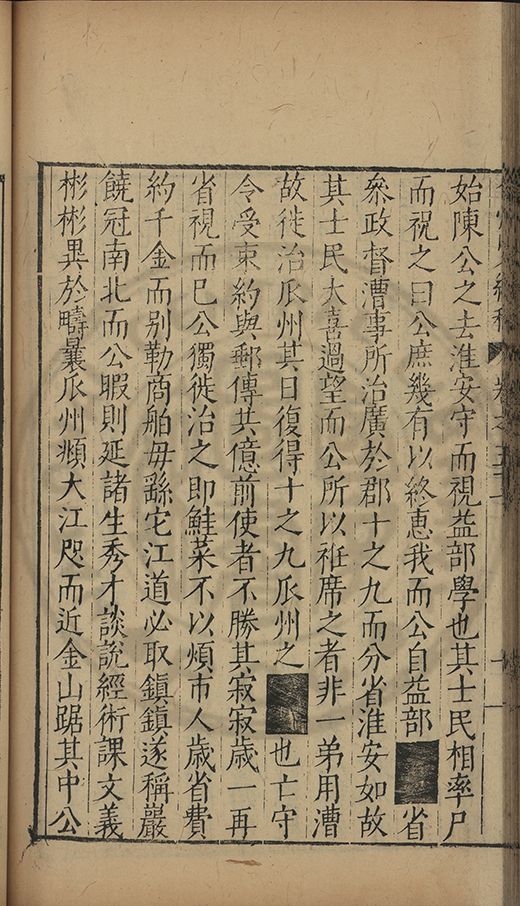 始陳公之去淮安守而視益部學也其士民相率尸
而祝之曰公庶幾有以終惠我而公自益部省
叅政督漕事所治廣於郡十之九而分省淮安如故
其士民大喜過望而公所以袵席之者非一弟用漕
故徙治瓜州其日復得十之九瓜州之也亡守
令受束約與郵傳共億前使者不勝其寂寂歲一再
省視而巳公獨徙治之即鮭菜不以煩市人歲省費
約千金而别勒商舶毋繇它江道必取鎮鎮遂稱巖
饒冠南北而公暇則延諸生秀才談說經術課文義
彬彬異於疇曩瓜州瀕大江咫而近金山踞其中公